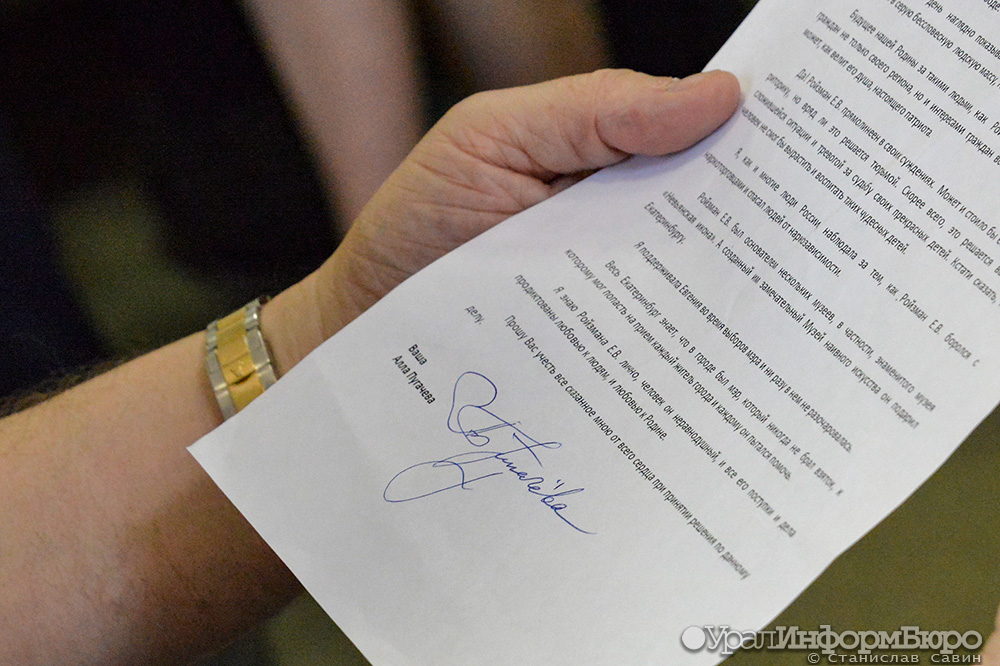 день наглядно показыва
в серую бессловесную людскую масс
Будущее нашей Родины за такими людьми, как
граждан не только своего региона, но и интересами граждан
может, как велит его душа, настоящего патриота.
Да! Ройзман Е.В. прямолинеен в свои суждениях. Может и стоило бы
риторику, но вряд ли это решается тюрьмой. Скорее всего, это решается
сложившейся ситуации и тревогой за судьбу своих прекрасных детей. Кстати сказать,
человек не смог бы вырастить и воспитать таких чудесных детей.
Я, как и многие люди России, наблюдала за тем, как Ройзман Е.В. боролся с
наркоторговцами и спасал людей от наркозависимости.
Ройзман Е.В. был основателем нескольких музеев, в частности, знаменитого музея
«Невьянская икона». А созданный им замечательный Музей наивного искусства он подарил
Екатеринбургу.
Я поддерживала Евгения во время выборов мэра и ни разу в нем не разочаровалась.
Весь Екатеринбург знает, что в городе был мэр, который никогда не брал взяток, к
которому мог попасть на прием каждый житель города и каждому он пытался помочь.
Я знаю Ройзмана Е.В. лично, человек он неравнодушный, и все его поступки и дела
продиктованы любовью к людям, и любовью к Родине.
Прошу Вас учесть все сказанное мною от всего сердца при принятии решения по данному
делу.
Ваша
Алла Пугачева
Пугачёва
УралИнформБюро
© Станислав Савин